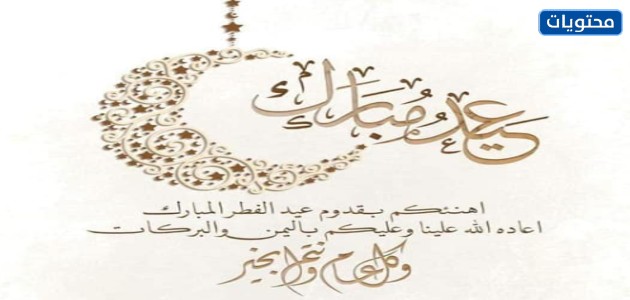 محتويات
عيد مبارك
اهنئكم بقدوم عيد الفطر المبارك
اعاده الله علينا وعليكم باليمن والبركات
وكل عام وانتم بخير